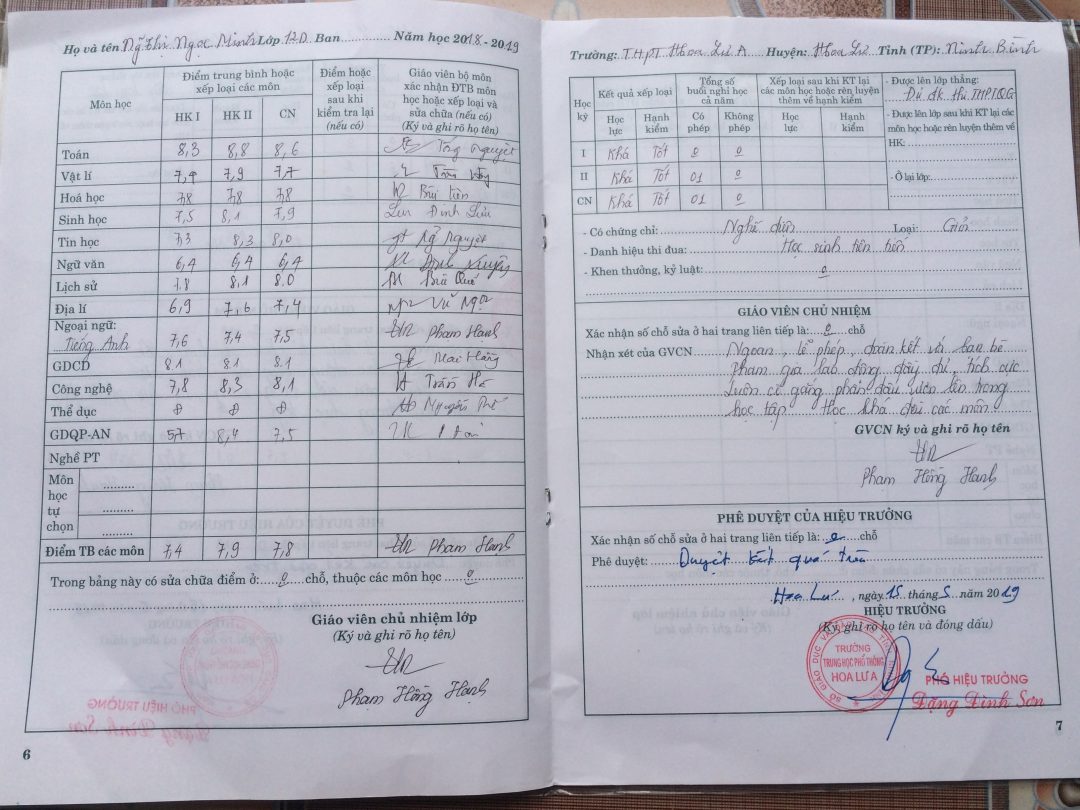 Họ và tên Ng Thị Ngọc Minh Lớp 12D Ban............. Năm học 2018 - 2019
Môn học
Điểm trung bình hoặc xếp loại các môn
HK I HK II CN
Điểm hoặc xếp loại sau khi kiểm tra lại (nếu có)
Giáo viên bộ môn xác nhận ĐTB môn học hoặc xếp loại và sửa chữa (nếu có) (Ký và ghi rõ họ tên)
Toán 8,3 8,8 8,6 Tống Nguyệt
Vật lí 7,4 7,9 7,7
Hoá học 7,8 7,8 7,8 Bùi Liên
Sinh học 7,5 8,1 7,9 Đinh Lưu
Tin học 7,3 8,3 8,0 Nguyệt
Ngữ văn 6,4 6,4 6,4
Lịch sử 7.8 8.1 8.0 Bùi Quế
Địa lí 6,9 7,6 7,4 Vũ Nga
Ngoại ngữ:
Tiếng Anh 7,6 7,4 7,5 Phạm Hạnh
GDCD 8.1 8.1 8.1 Mai Hồng
Công nghệ 7,8 8,3 8,1 Trần Hà
Thể dục Đ Đ Đ Nguyễn
GDQP-AN 5,7 8,4 7,5
Nghề PT
Môn học tự chọn
.........
.........
.........
Điểm TB các môn 7,4 7,9 7,8 Phạm Hạnh
Trong bảng này có sửa chữa điểm ở: 0 chỗ, thuộc các môn học 0
Giáo viên chủ nhiệm lớp
(Ký và ghi rõ họ tên)
Phạm Hồng Hạnh
PHÓ HIỆU TRƯỞNG
Đặng Đình Sơn
6
Trường: THPT Hoa Lư A Huyện: Hoa Lư Tỉnh (TP): Ninh Bình
Học kỳ
Kết quả xếp loại
Học lực Hạnh kiểm
Tổng số buổi nghỉ học cả năm
Có phép Không phép
Xếp loại sau khi KT lại các môn học hoặc rèn luyện thêm về hạnh kiểm
Học lực Hạnh kiểm
- Được lên lớp thẳng:
Đủ đk thi THPTQG
- Được lên lớp sau khi KT lại các môn học hoặc rèn luyện thêm về HK:
- Ở lại lớp:
I Khá Tốt 0 0
II Khá Tốt 01 0
CN Khá Tốt 01 0
- Có chứng chỉ: Nghề điện Loại: Giỏi
- Danh hiệu thi đua: Học sinh tiên tiến
- Khen thưởng, kỷ luật: 0
GIÁO VIÊN CHỦ NHIỆM
Xác nhận số chỗ sửa ở hai trang liên tiếp là: 0 chỗ
Nhận xét của GVCN Ngoan, lễ phép, đoàn kết với bạn bè
Tham gia lao động đầy đủ, tích cực
Luôn cố gắng phấn đấu vươn lên trong
học tập Học khá đều các môn.
GVCN ký và ghi rõ họ tên
Phạm Hồng Hạnh
PHÊ DUYỆT CỦA HIỆU TRƯỞNG
Xác nhận số chỗ sửa ở hai trang liên tiếp là: 0 chỗ
Phê duyệt: Duyệt kết quả trên
Hoa Lư, ngày 15 tháng 5 năm 2019
HIỆU TRƯỞNG
(Ký, ghi rõ họ tên và đóng dấu)
TRƯỜNG
TRUNG HỌC PHỔ THÔNG
HOA LƯ A
PHÓ HIỆU TRƯỞNG
Đặng Đình Sơn
7